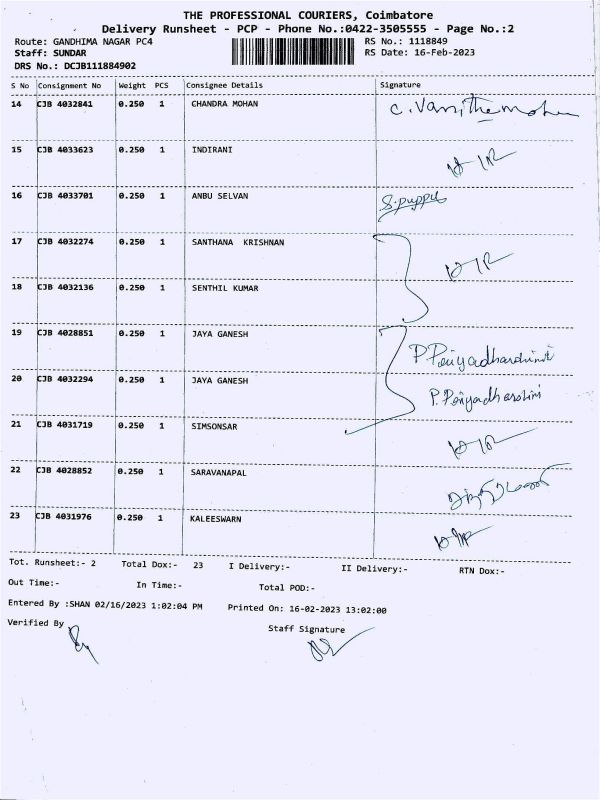 THE PROFESSIONAL COURIERS, Coimbatore
Delivery Runsheet - PCP - Phone No.:0422-3505555 - Page No.:2
Route: GANDHIMA NAGAR PC4 RS No.: 1118849
Staff: SUNDAR RS Date: 16-Feb-2023
DRS No.: DCJB111884902
S No Consignment No Weight PCS Consignee Details Signature
14 CJB 4032841 0.250 1 CHANDRA MOHAN C. Vanithemohen
15 CJB 4033623 0.250 1 INDIRANI
16 CJB 4033701 0.250 1 ANBU SELVAN
17 CJB 4032274 0.250 1 SANTHANA KRISHNAN
18 CJB 4032136 0.250 1 SENTHIL KUMAR
19 CJB 4028851 0.250 1 JAYA GANESH P. Periyadharshini
20 CJB 4032294 0.250 1 JAYA GANESH P. Periyadharshini
21 CJB 4031719 0.250 1 SIMSONSAR
22 CJB 4028852 0.250 1 SARAVANAPAL
23 CJB 4031976 0.250 1 KALEESWARN
Tot. Runsheet:- 2 Total Dox:- 23 I Delivery:- II Delivery:- RTN Dox:-
Out Time:- In Time:- Total POD:-
Entered By :SHAN 02/16/2023 1:02:04 PM Printed On: 16-02-2023 13:02:00
Verified By Staff Signature